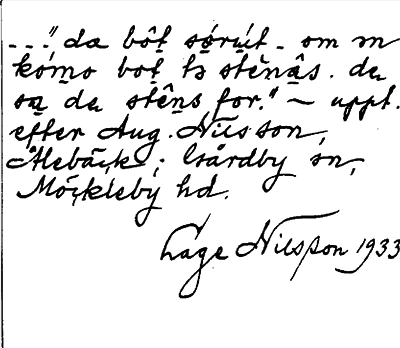 ..." da bôt sórút - om m
kómo bot ts stênâs. da
sa da stêns for." ~ uppt.
efter Aug. Nilsson,
Ålebäck; Gårdby sn,
Möckleby hd.
Lage Nilsson 1933